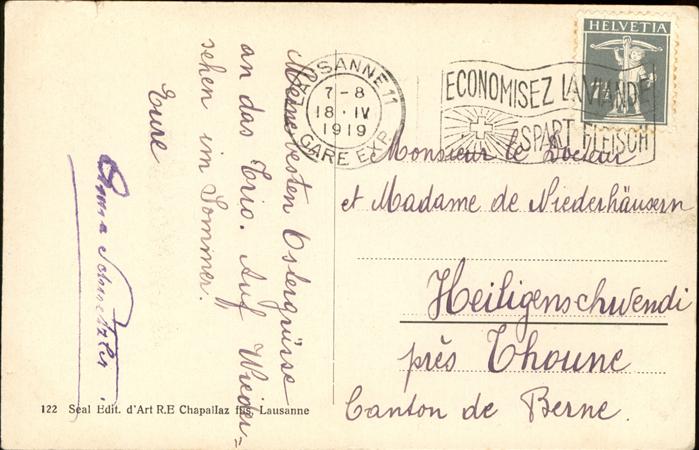 Meine besten Ostergrüsse
an das Trio. Auf Wieder=
sehen im Sommer.
Eure
HELVETIA
7½
LAUSANNE 11
7-8
18·IV
1919
GARE EXP.
ECONOMISEZ LA VIANDE
SPART FLEISCH
Monsieur le Docteur
et Madame de Niederhäusern
Heiligenschwendi
près Thoune
Canton de Berne.
122 Seal Edit. d'Art R.E Chapallaz fils, Lausanne